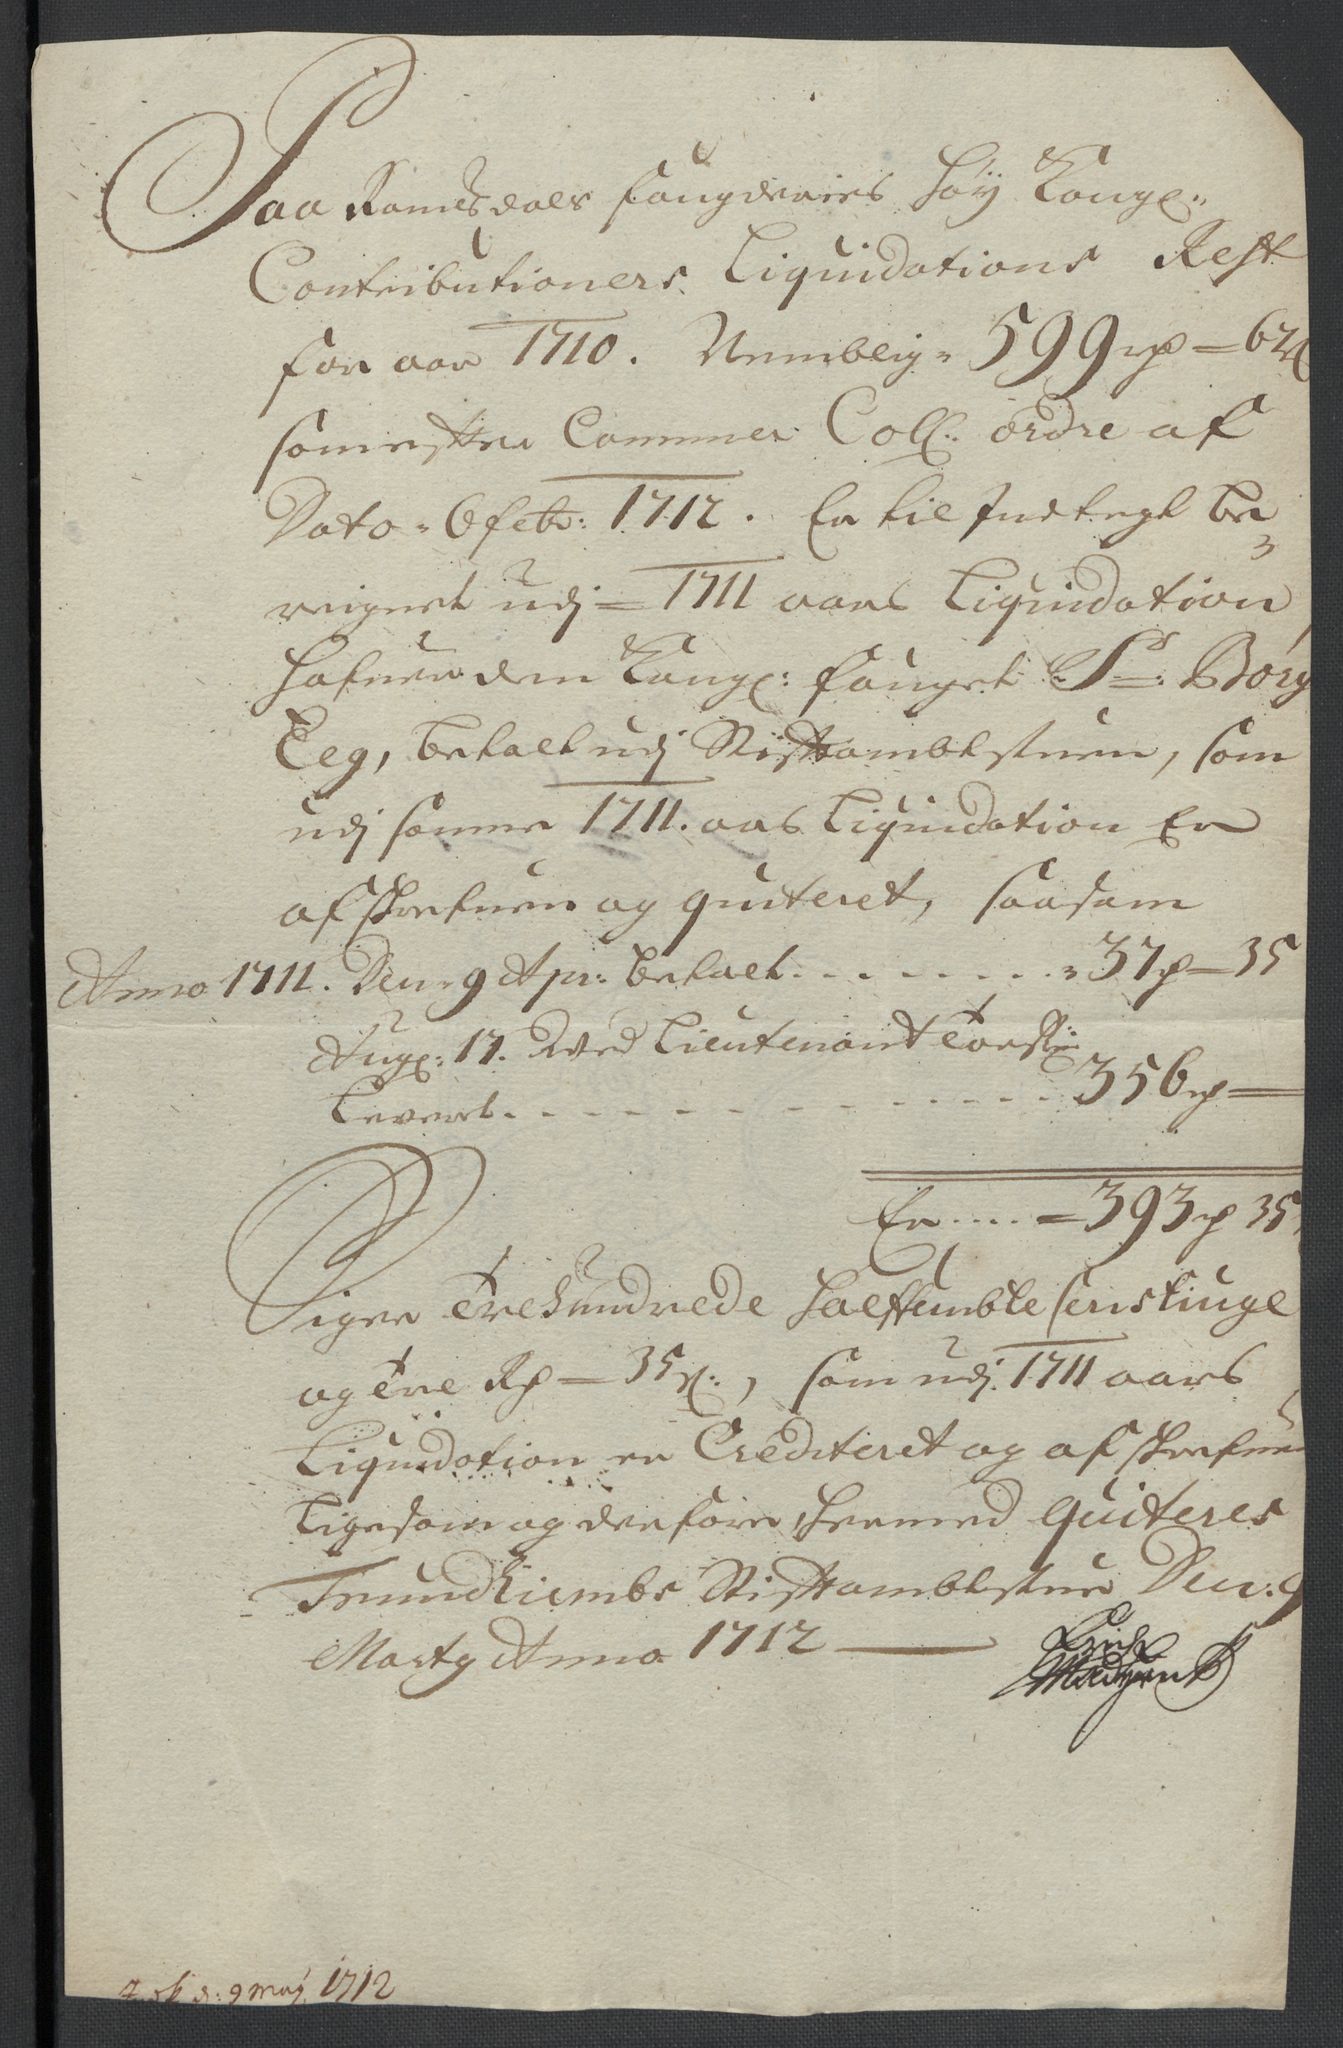 Paa Romsdals fougderies høy Kongl:
Contributioners Liquidations Rest
for aar 1710. Nemblig 599 rdr – 62 s
som effter Cammer Coll: ordre af
Dato 6 febr: 1712. Er til Indtegt be
reignet udj 1711 aars Liquidation,
hafuer den Kongl: fouget Sr: Børg
Eeg, betalt udj Stiftambtstuen, som
udj samme 1711. aars Liquidation er
afskrefuen og quiteret, saasom
Anno 1711. Den 9 Apr: betalt . . . . . . . . 37 rdr – 35
Aug: 17. Ved Lieutenant
Leveret . . . . . . . . . . . . . . . 356 rdr –
Er . . . . 393 rdr 35
Siger Trehundrede halffembte sindstiuge
og tre Rdr – 35 s:, som udj 1711 aars
Liquidation er Crediteret og afskrefuen
ligesom og derfore hermed quiteres
Trundhiembs Stiftambtstue Den: 9
Marty Anno 1712
d: 9 Maj 1712